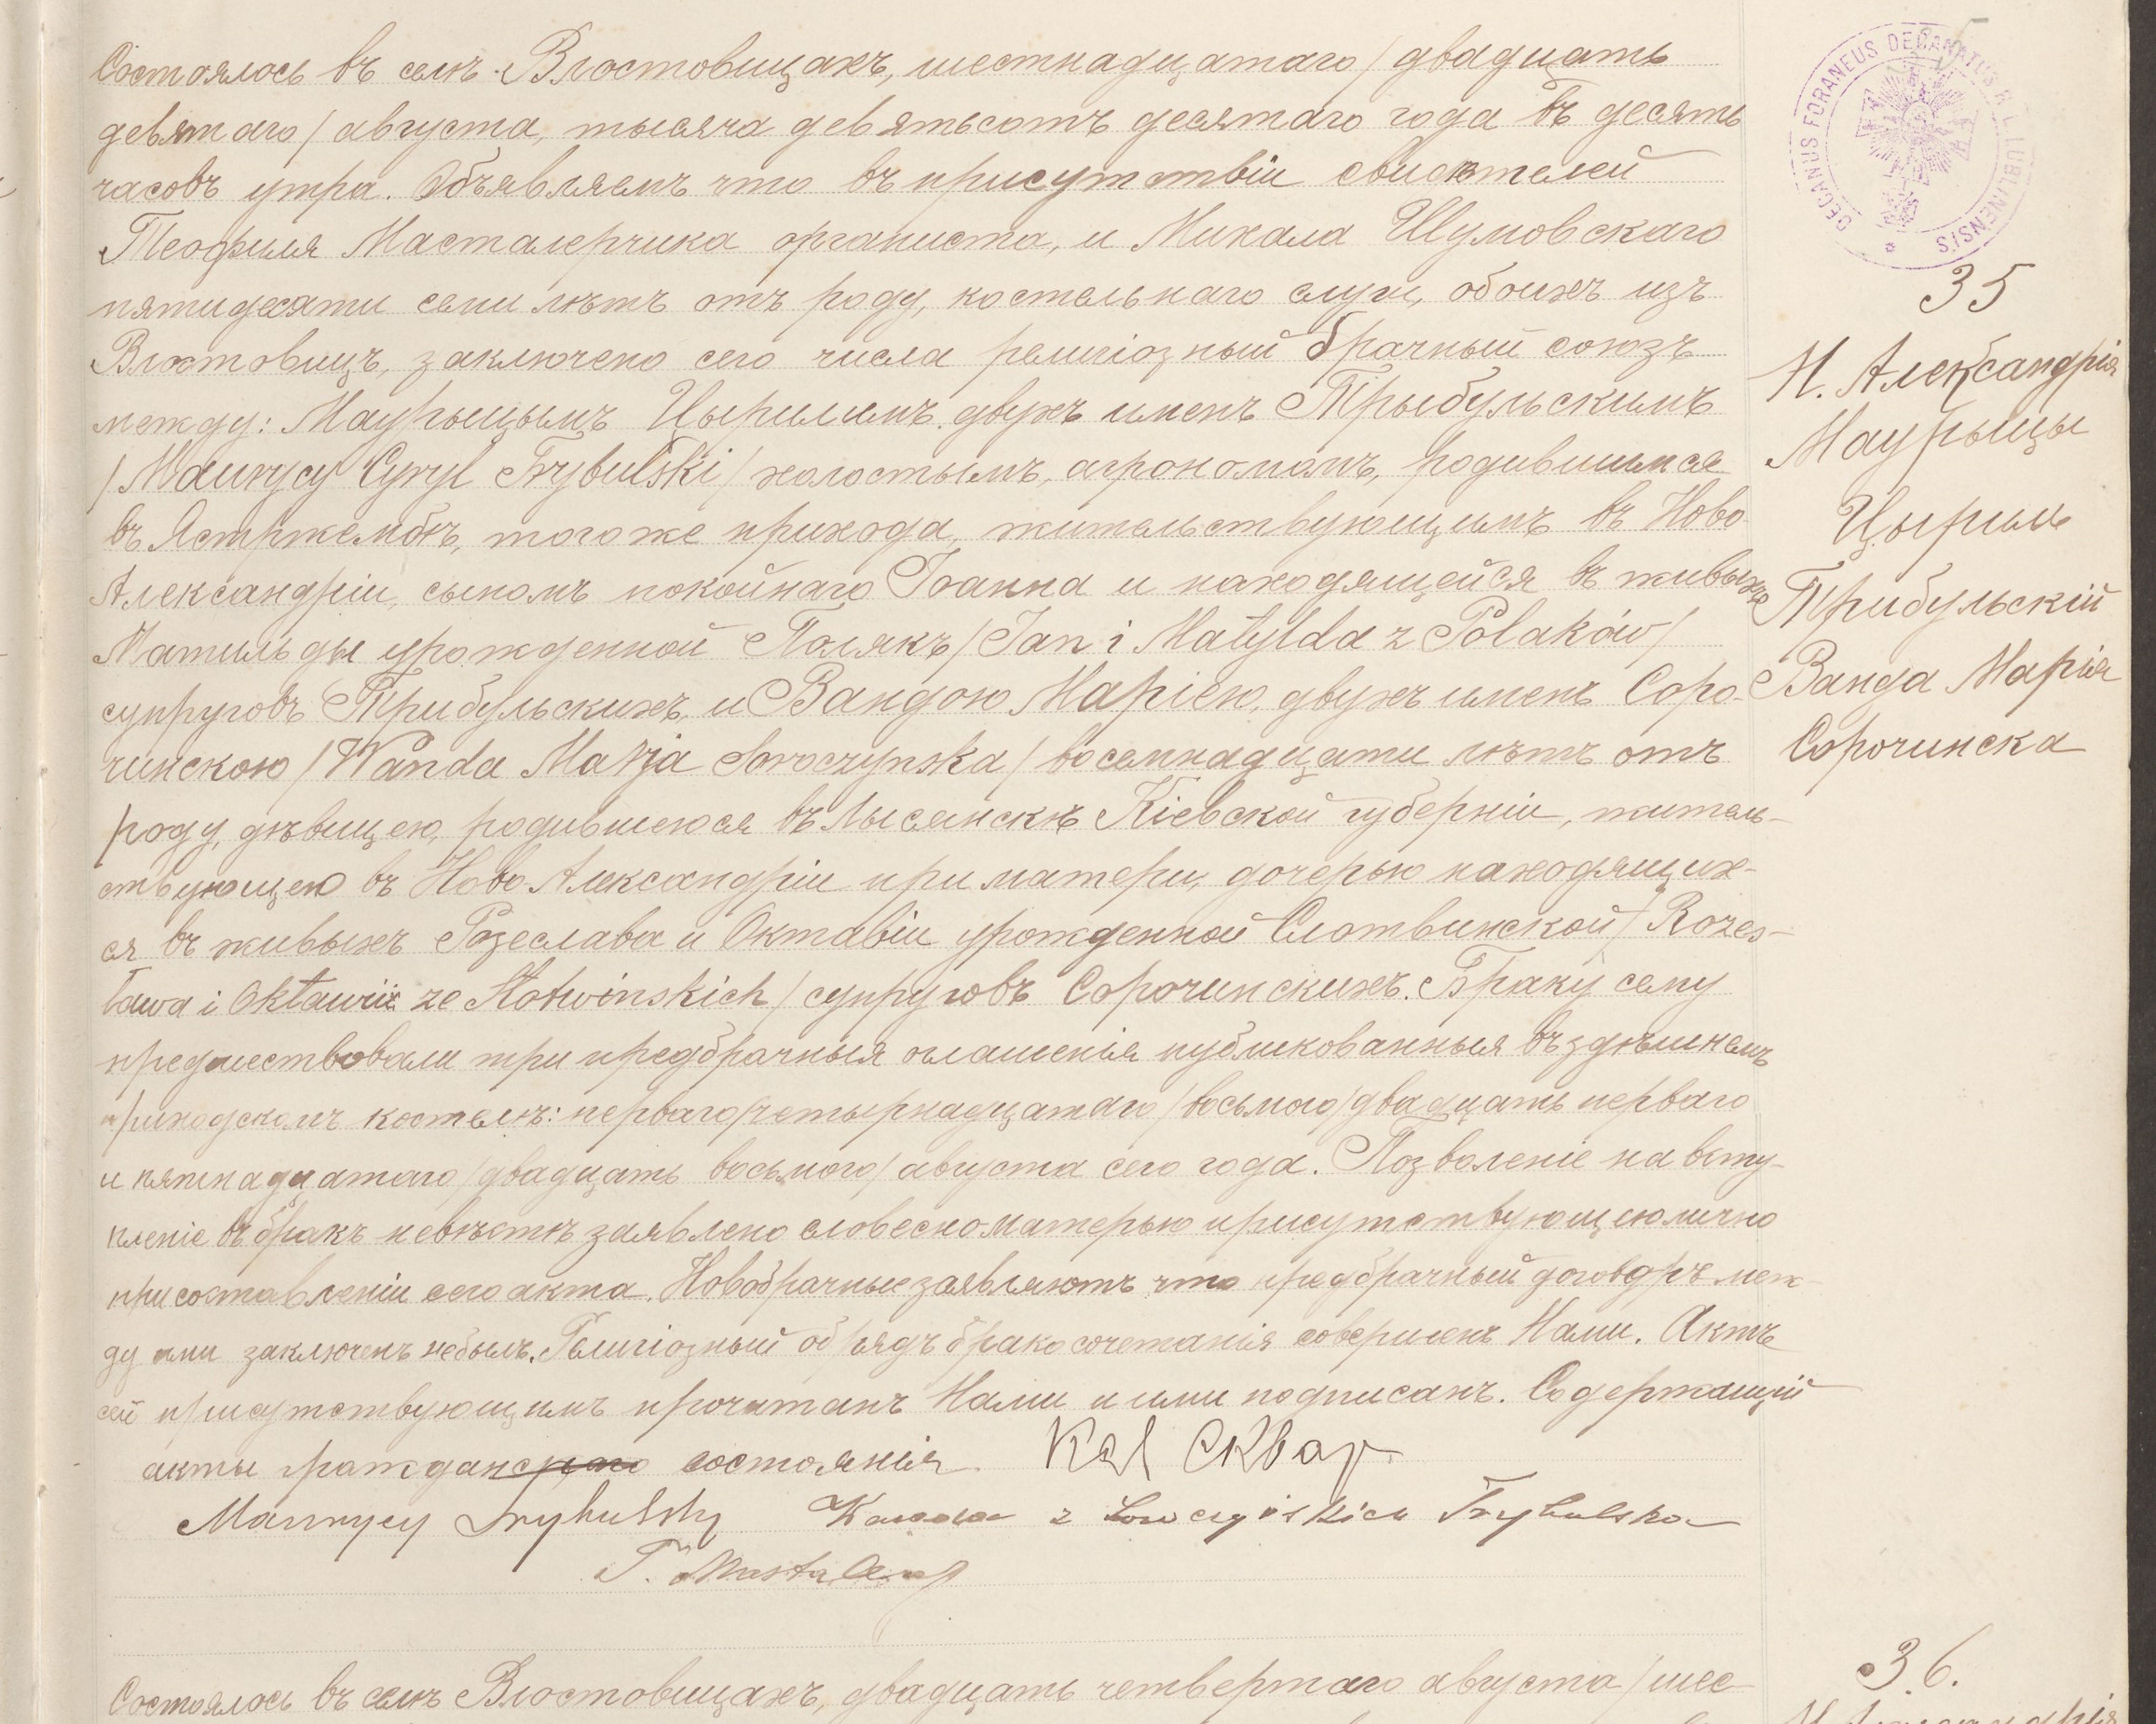 Состоялось въ селѣ Влостовицахъ, шестнадцатаго / двадцать
девятаго / августа, тысяча девятьсотъ десятаго года въ десять
часовъ утра. Объявляемъ что въ присутствіи свидѣтелей
Теофиля Масталерчика органиста, и Михала Шумовскаго
пятидесяти семи лѣтъ отъ роду, костельнаго слуги, обоихъ изъ
Влостовицъ, заключено сего числа религіозный брачный союзъ
между: Маурыцымъ Цырилемъ двухъ именъ Трыбульскимъ
/ Maurycy Cyryl Trybulski / холостымъ, агрономомъ, родившимся
въ Ястржембѣ, того же прихода, жительствующимъ въ Ново
Александріи, сыномъ покойнаго Іоанна и находящейся въ живыхъ
Матильды урожденной Полякъ / Jan i Matylda z Polaków /
супруговъ Трибульскихъ, и Вандою Маріею, двухъ именъ Соро-
чинскою / Wanda Marja Soroczynska / восемнадцати лѣтъ отъ
роду, дѣвицею, родившеюся въ Лысянскѣ Кіевской губерніи, житель-
ствующею въ Ново Александріи при матери, дочерью находящих-
ся въ живыхъ Розеслава и Октавіи урожденной Слотвинской / Rozes-
ława i Oktawii ze Słotwinskich / супруговъ Сорочинскихъ. Браку сему
предшествовали три предбрачныя оглашенія публикованныя въ здѣшнемъ
приходскомъ костелѣ: перваго / четырнадцатаго / восьмого / двадцать перваго
и пятнадцатаго / двадцать восьмого / августа сего года. Позволеніе на всту-
пленіе въ бракъ невѣстѣ заявлено словесно матерью присутствующею лично
при составленіи сего акта. Новобрачные заявляютъ что предбрачный договоръ меж-
ду ими заключенъ небылъ. Религіозный обрядъ бракосочетанія совершенъ Нами. Актъ
сей присутствующимъ прочитанъ Нами и ими подписанъ. Содержащій
акты гражданскаго состоянія.
Maurycy Trybulski z Soroczyńskich Trybulska
T. Mastalerz
Состоялось въ селѣ Влостовицахъ, двадцать четвертаго августа / шес-
DECANUS FORANEUS DECANATUS LUBLINENSIS
35
Н. Александрія
Маурыцы
Цыриль
Трибульскій
Ванда Марія
Сорочинска
36.